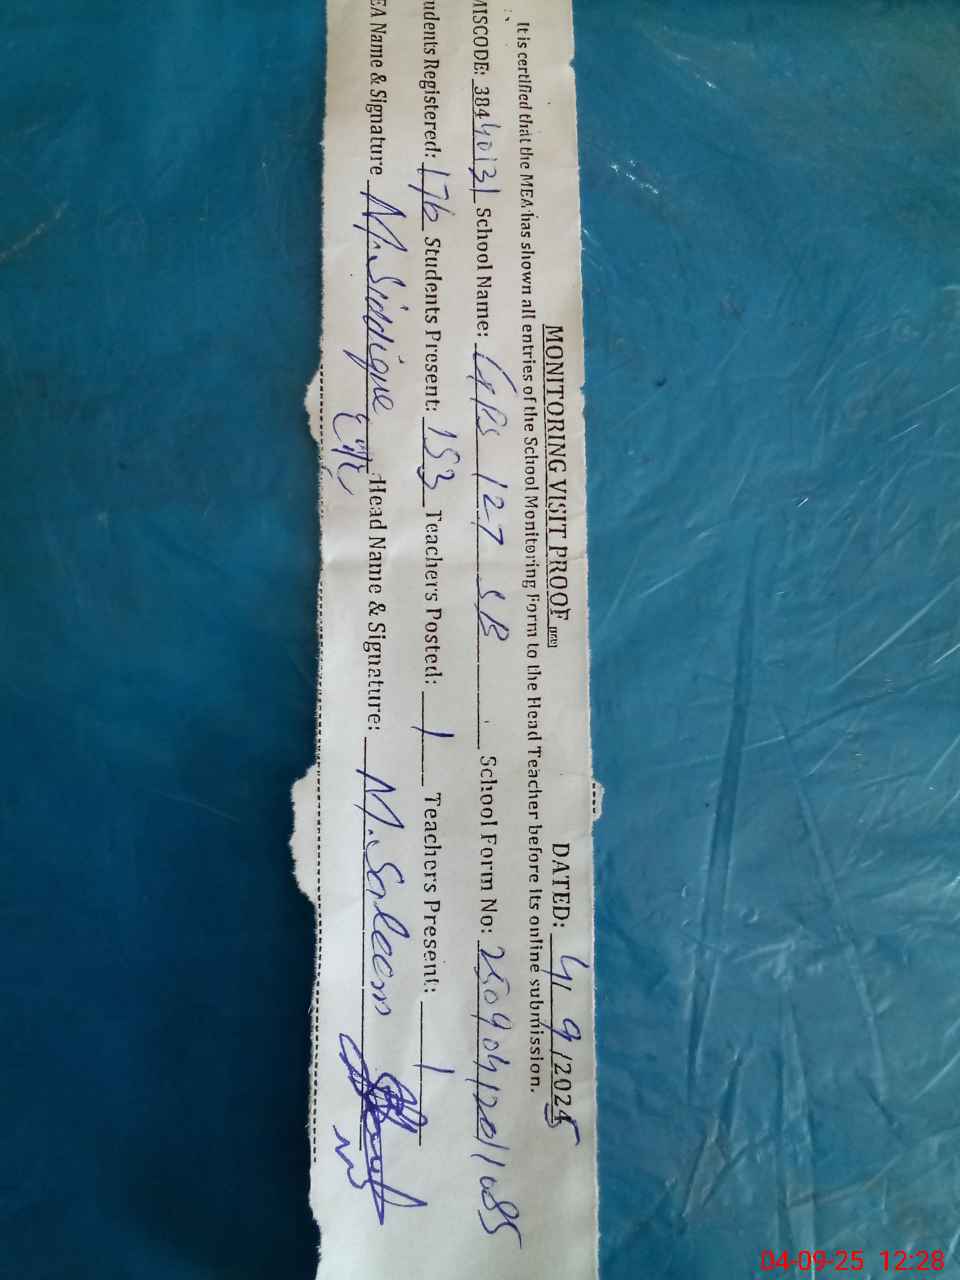 MONITORING VISIT PROOF DATED: 4/ 9 /2025
It is certified that the MEA has shown all entries of the School Monitoring Form to the Head Teacher before its online submission.
MISCODE: 38440131 School Name: GPS 127 SB School Form No:
udents Registered: 176 Students Present: 153 Teachers Posted: 1 Teachers Present: 1
EA Name & Signature M. Siddique Head Name & Signature: M. Saleem
04-09-25 12:28